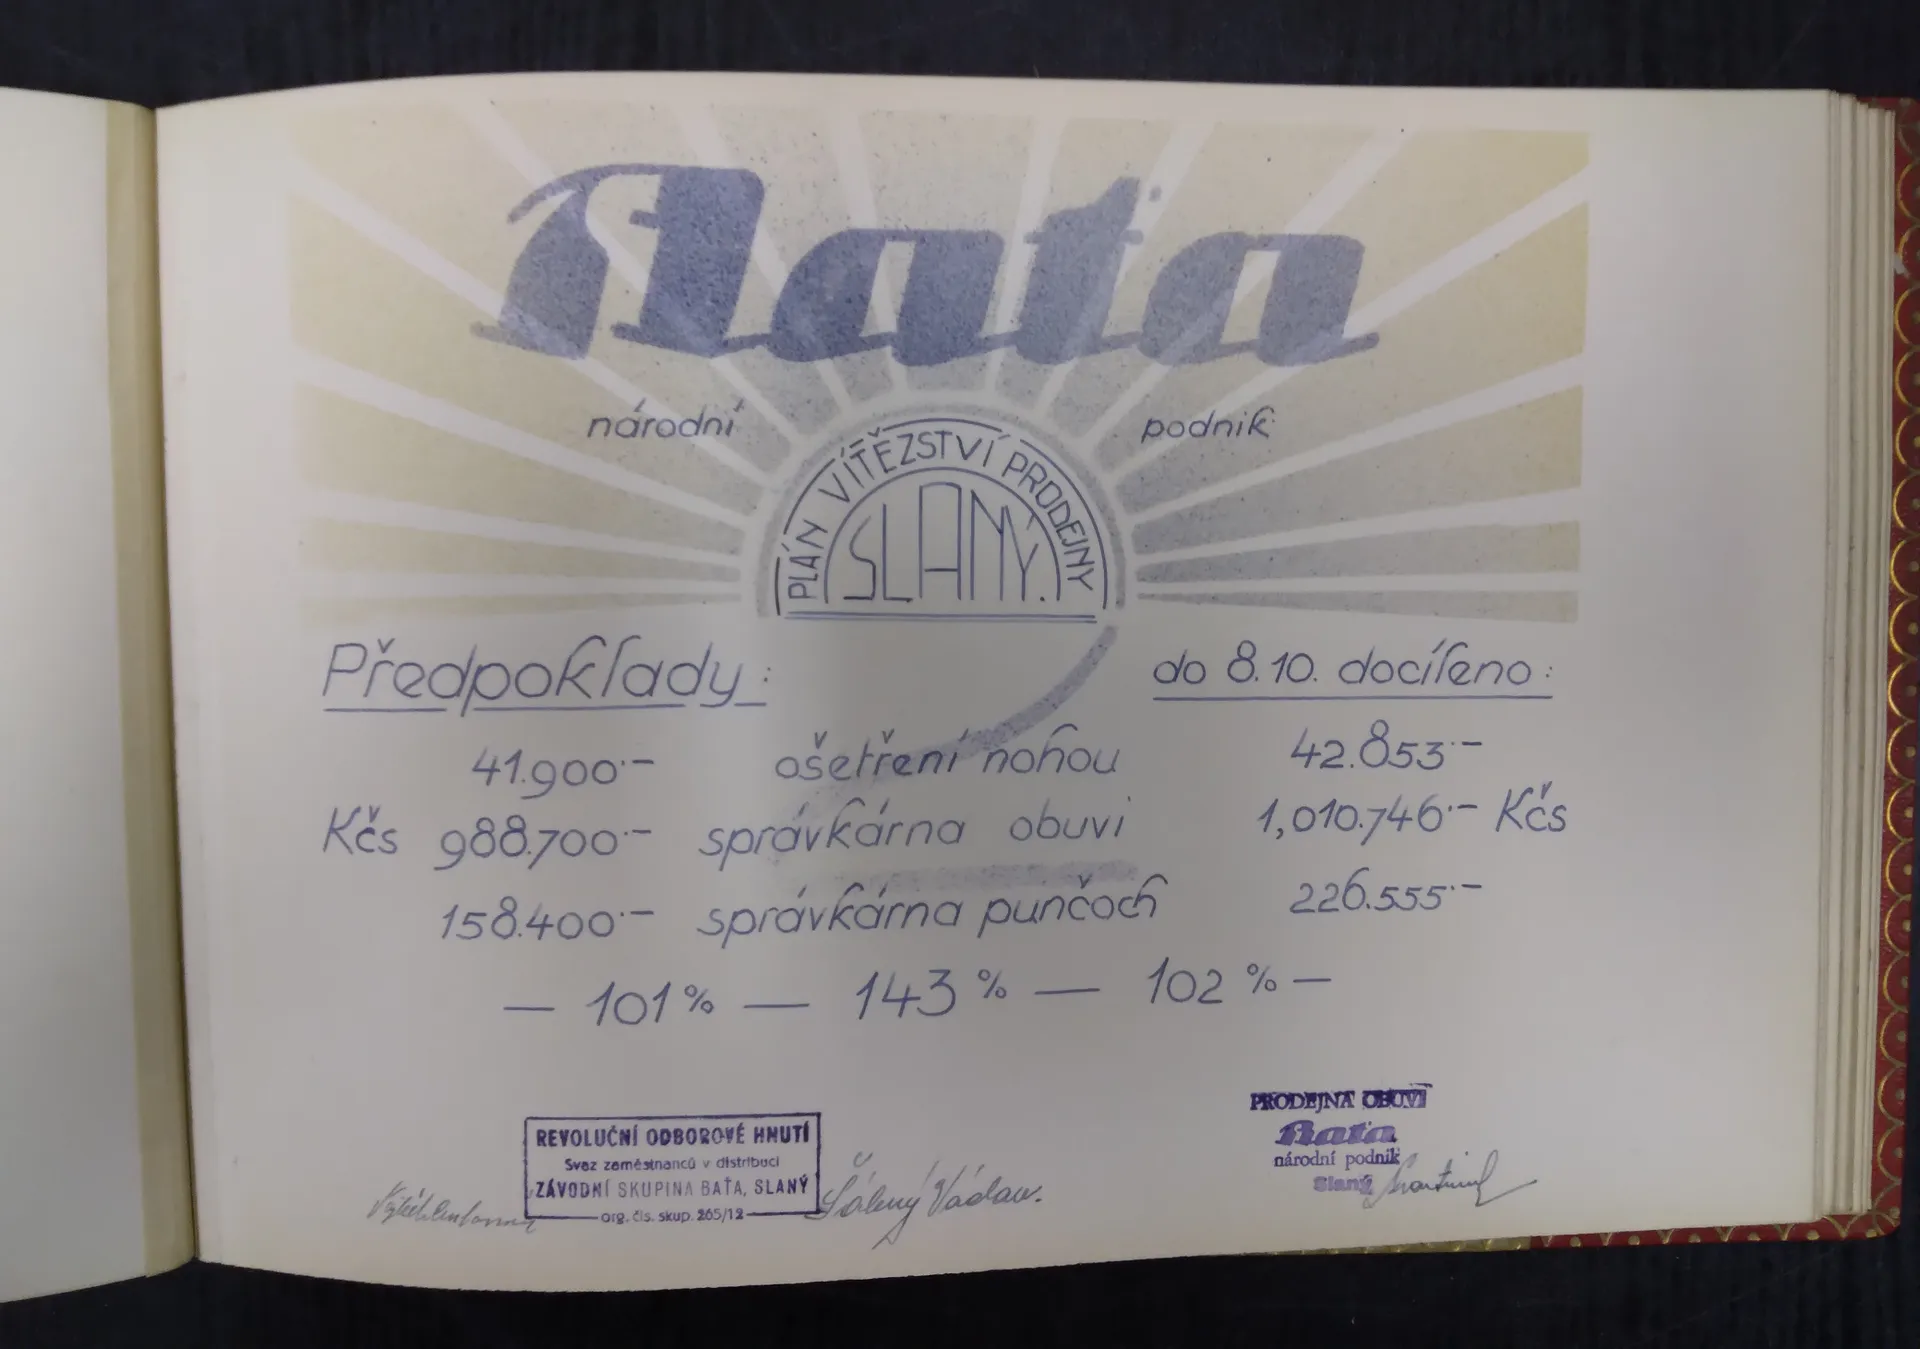 Baťa
národní podnik
PLÁN VÍTĚZSTVÍ PRODEJNY
SLANÝ.
Předpoklady: do 8.10. docíleno:
41.900·– ošetření nohou 42.853·–
Kčs 988.700·– správkárna obuvi 1,010.746·– Kčs
158.400·– správkárna punčoch 226.555·–
— 101% — 143% — 102% —
REVOLUČNÍ ODBOROVÉ HNUTÍ
Svaz zaměstnanců v distribuci
ZÁVODNÍ SKUPINA BAŤA, SLANÝ
org. čís. skup. 265/12
Šálený Václav.
PRODEJNA OBUVI
Baťa
národní podnik
Slaný